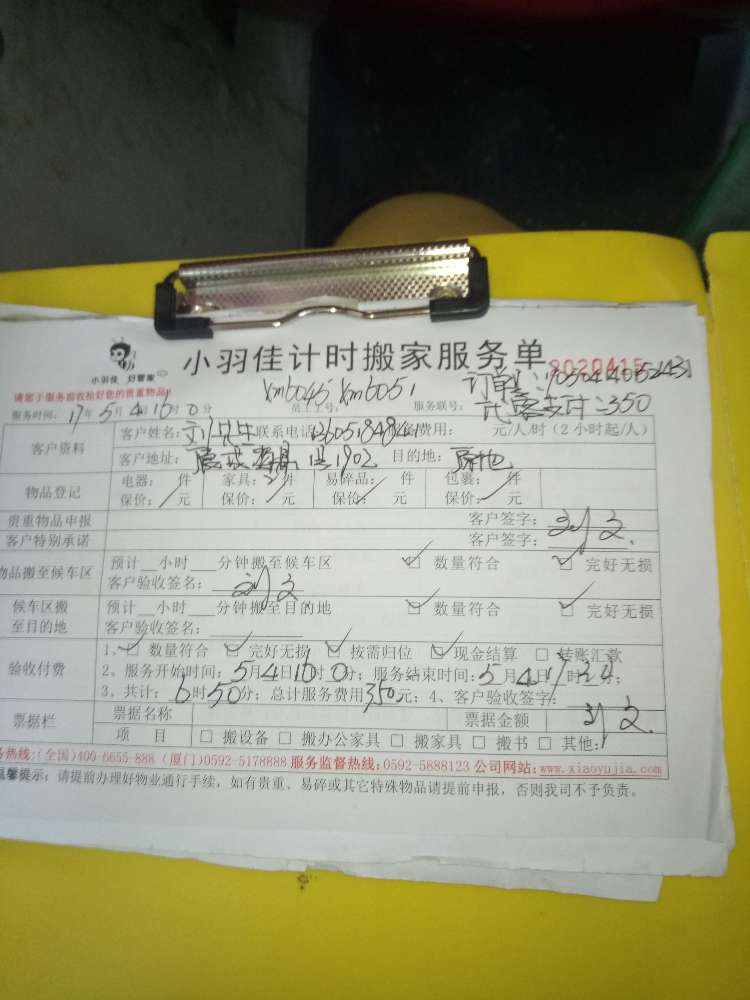 小羽佳计时搬家服务单
小羽佳 好管家
8020415
请您于服务前收拾好您的贵重物品!
xm6045 xm6051
订单号:
代客支付:350
服务时间: 17年5月4日16时0分 员工工号: 服务联号:
客户资料 客户姓名: 联系电话: 费用: 元/人/时(2小时起/人)
客户地址: 1902 目的地:
物品登记 电器: 件 家具: 件 易碎品: 件 包裹: 件
保价: 元 保价: 元 保价: 元 保价: 元
贵重物品申报 客户签字: 刘文
客户特别承诺 客户签字:
物品搬至候车区 预计__小时__分钟搬至候车区 ☑ 数量符合 ☑ 完好无损
客户验收签名: 刘文
候车区搬至目的地 预计__小时__分钟搬至目的地 ☑ 数量符合 ☑ 完好无损
客户验收签名:
验收付费 1、☑ 数量符合 ☑ 完好无损 ☑ 按需归位 ☑ 现金结算 □ 转账汇款
2、服务开始时间: 5月4日16时0分; 服务结束时间: 5月4日 时 分;
3、共计: 6时50分; 总计服务费用350元; 4、客户验收签字: 刘文
票据栏 票据名称 票据金额
项 目 □ 搬设备 □ 搬办公家具 □ 搬家具 □ 搬书 □ 其他:
务热线:(全国)400-6655-888 (厦门)0592-5178888 服务监督热线:0592-5888123 公司网站:www.xiaoyujia.com
温馨提示: 请提前办理好物业通行手续, 如有贵重、易碎或其它特殊物品请提前申报, 否则我司不予负责。